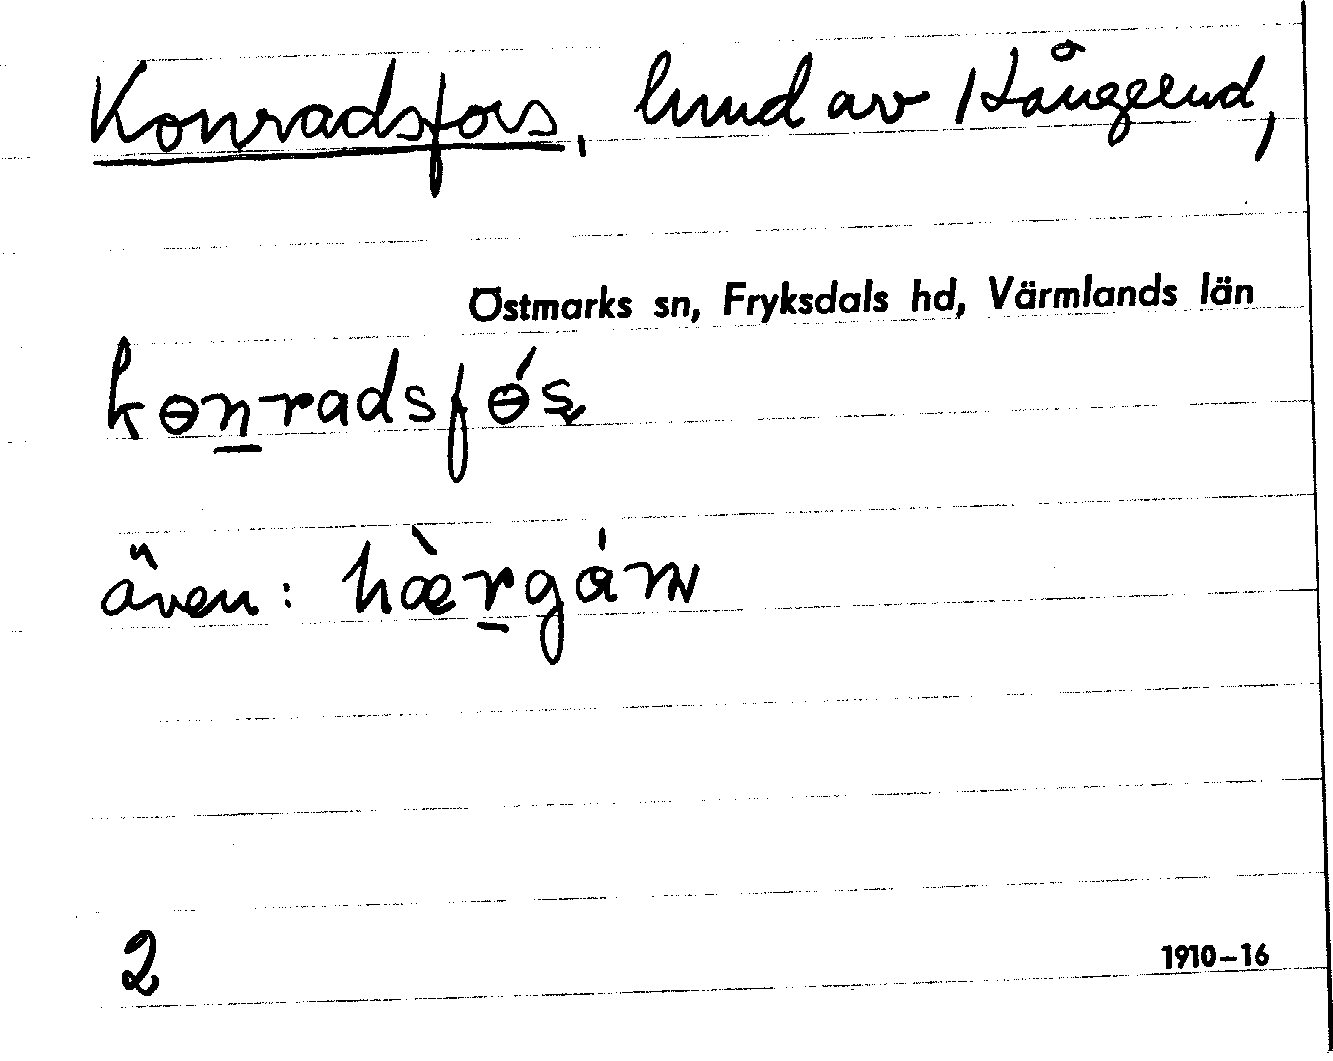 Konradsfors, hmd av Hånggend,
Östmarks sn, Fryksdals hd, Värmlands län
kɵnradsfɵ́ʂ
även: hæ̀rgáɳ
2
1910–16